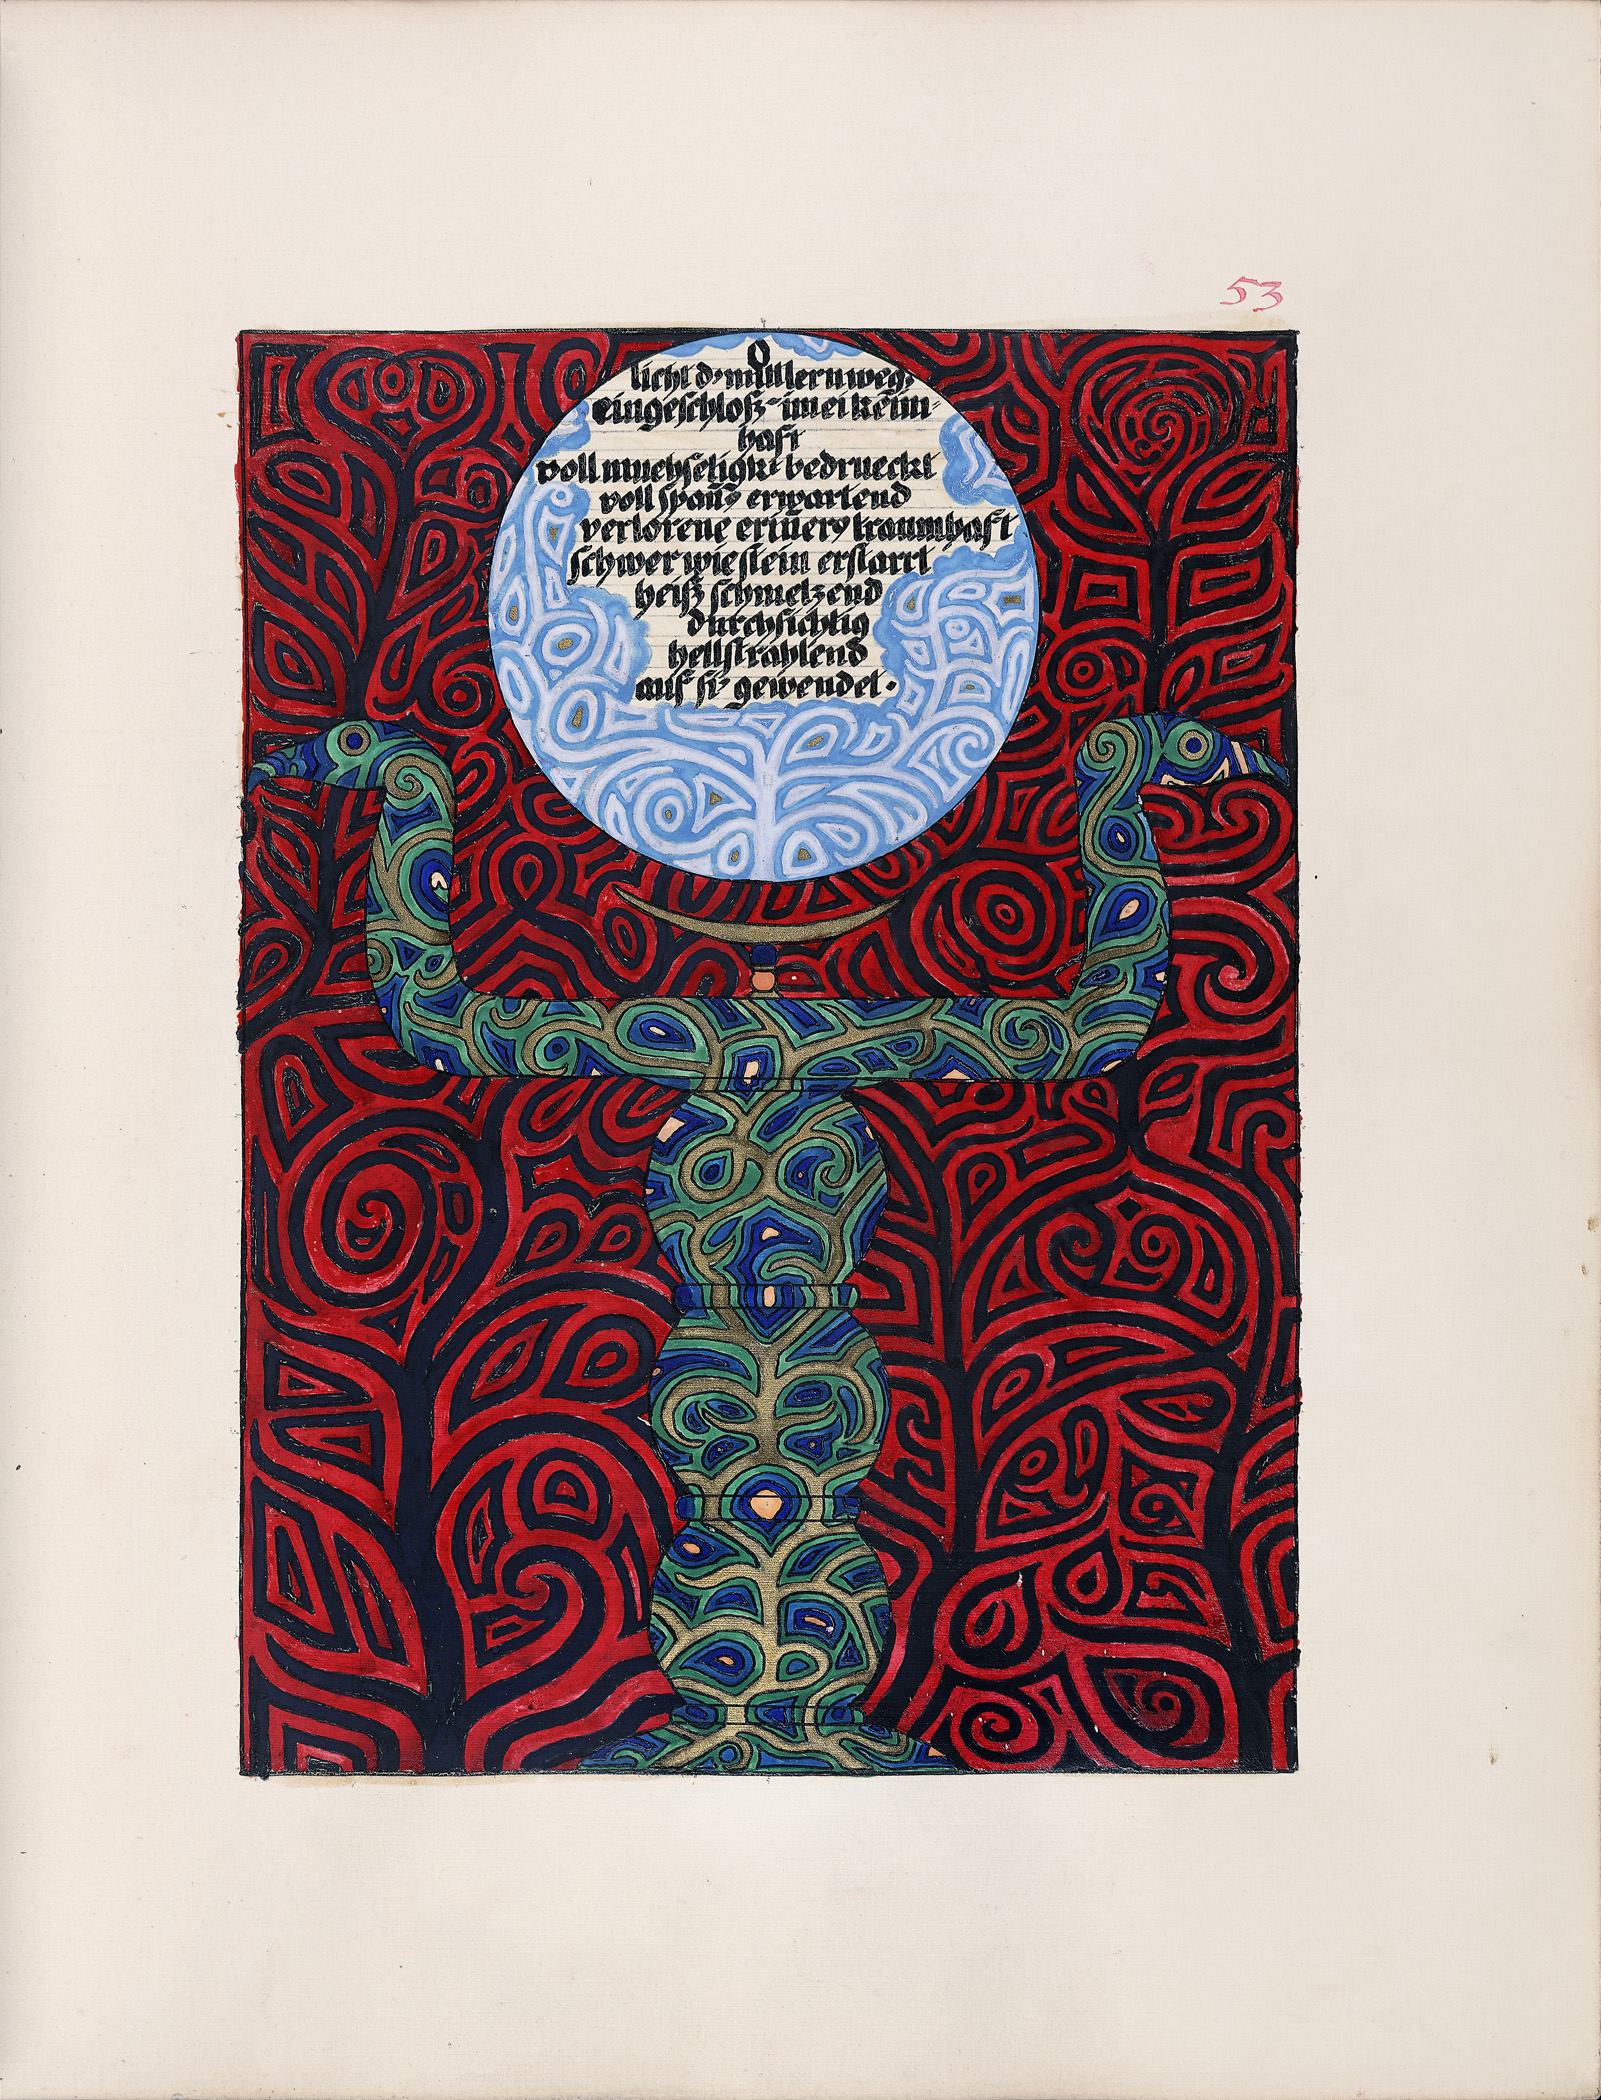 53
O
licht d' mittlern weg,
eingeschloß' im ei keim
haft
voll muehseligk' bedrueckt
voll spañg erwartend
verlorene eriñerg traumhaft
schwer wie stein erstarrt
heiß schmelzend
durchsichtig
hellstrahlend
auf si' gewendet.